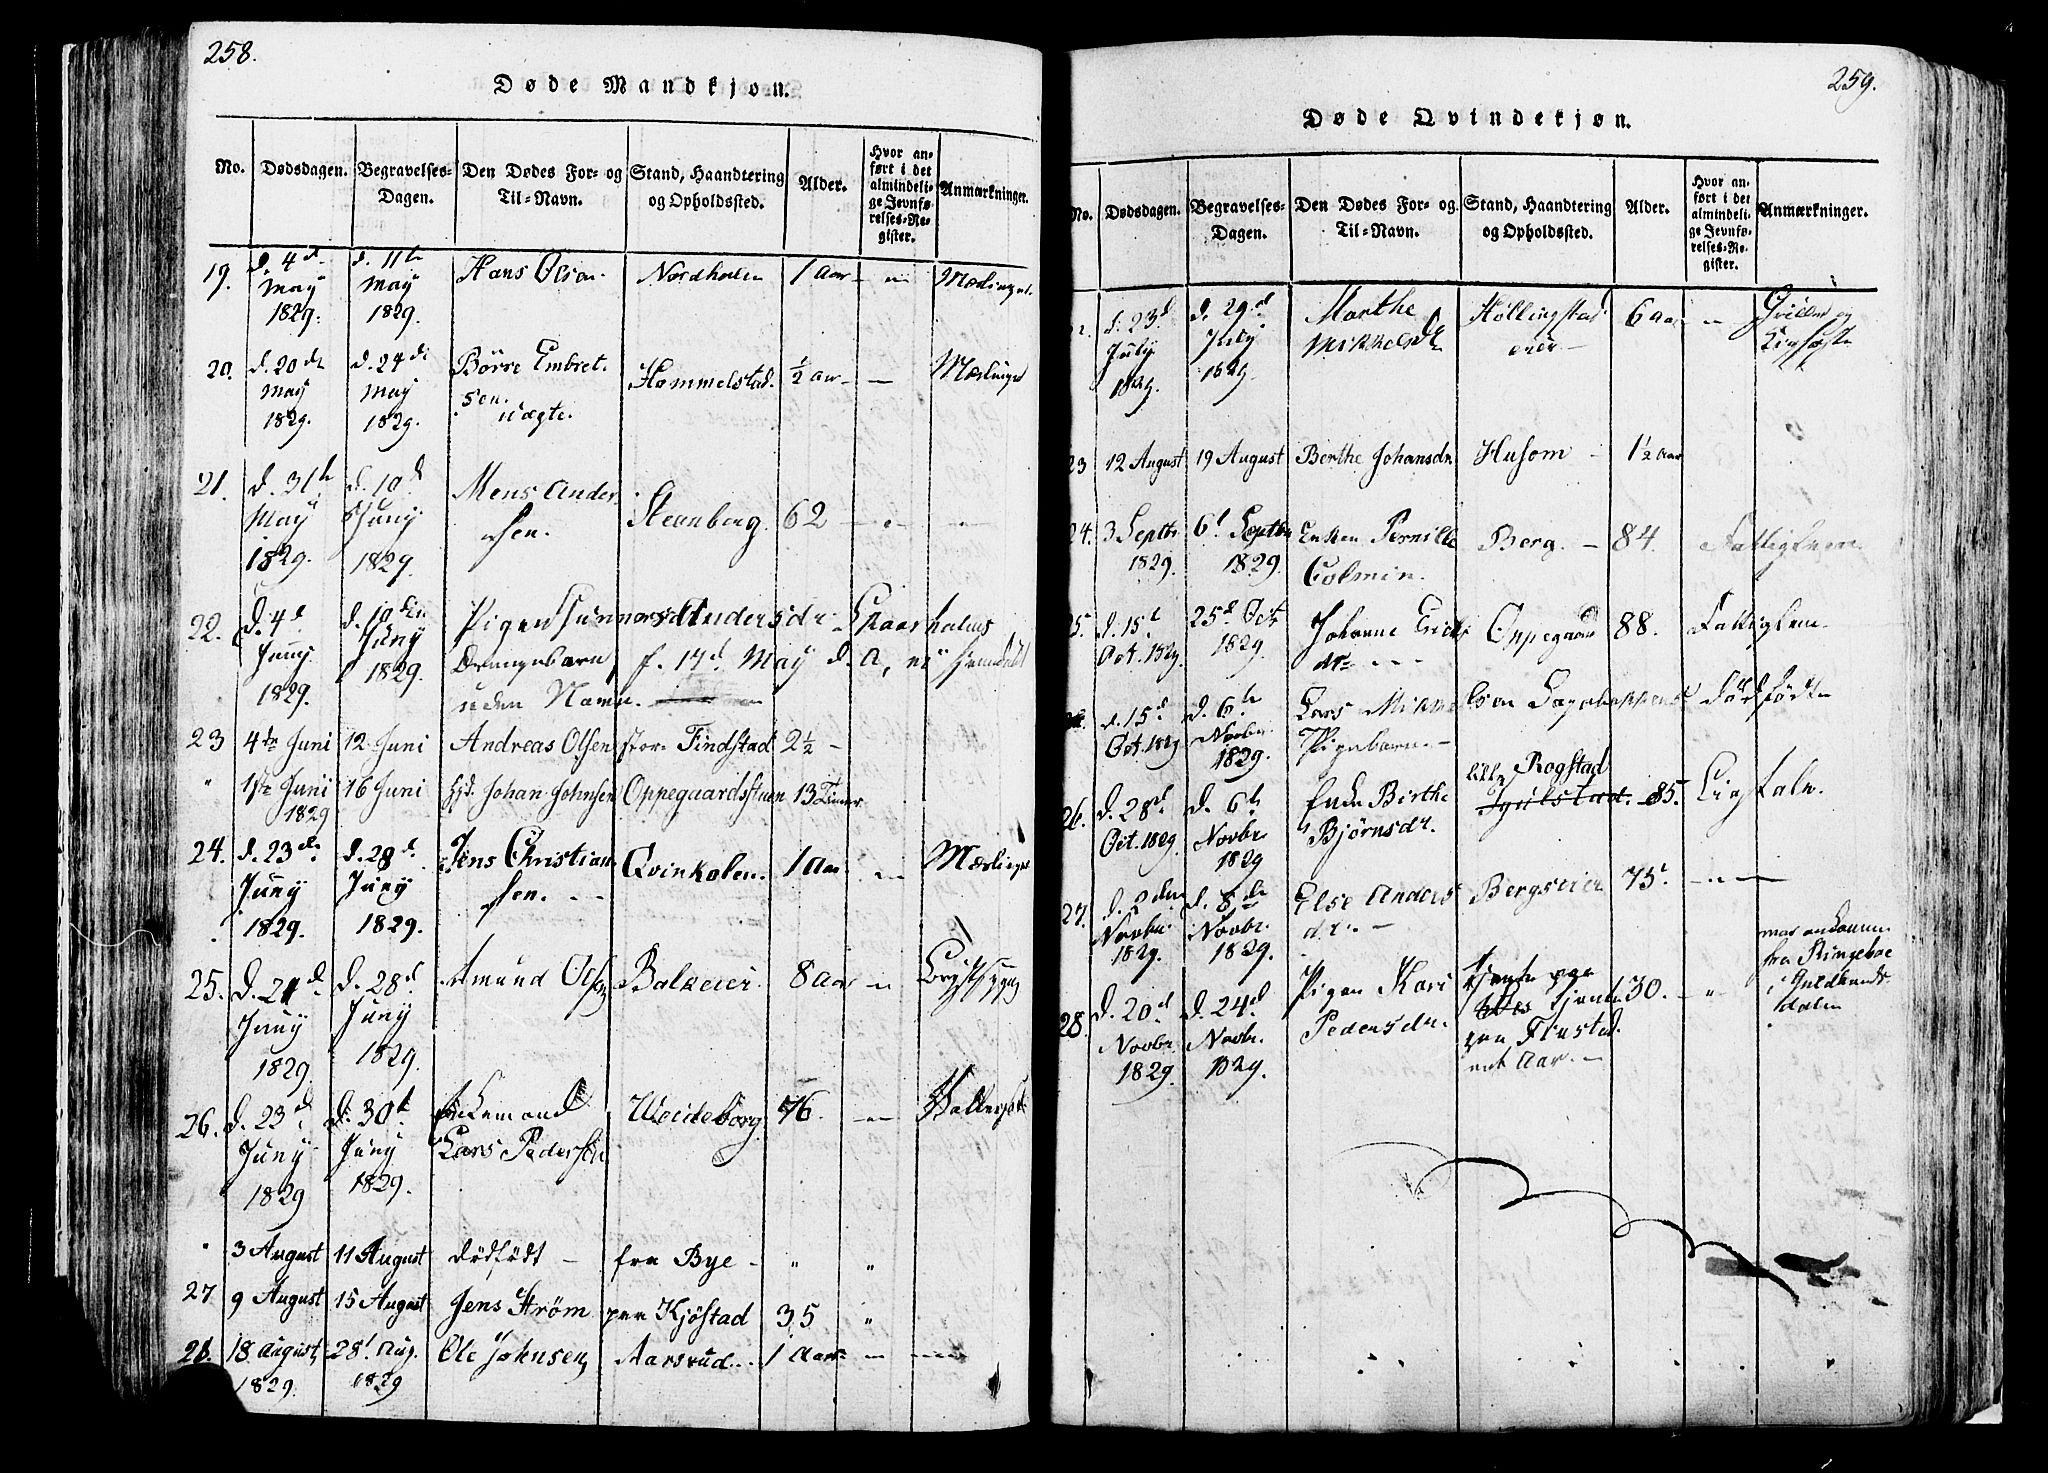 258.
Døde Mandkjøn.
No. Dødsdagen. Begravelses-Dagen. Den Dødes For- og Til-Navn. Stand, Haandtering og Opholdssted. Alder. Hvor anført i det almindelige Jevnførelses-Register. Anmærkninger.
19. d. 4d May 1829. d. 11te May 1829. Hans Olsen Nordholen 1 Aar
20. d. 20de May 1829. d. 24de May 1829. Börre Embretsen. uægte. Hammelstad ½ Aar
21. d. 31te May 1829. d. 10d Juny 1829. Mons Andersen. Steenberg. 62
22. d. 4d Juny 1829. d. 10de Juny 1829. Pigen Gunnor Andersdr Spaarholens
Drengebarn f. 17d May d. a,
uden Navn.
23 4de Juni 12 Juni Andreas Olsen store Findstad 2½
" 1ste Juni 1829 16 Juni Johan Johnsen Oppegaardsstuen 13 Timer
24. d. 23de Juny 1829. d. 28d Juny 1829. Jens Christiansen. Qvinholen. 1 Aar
25. d. 21d Juny 1829. d. 28d Juny 1829. Amund Olsen Balkeier 8 Aar Brystsyge
26. d. 23d Juny 1829 d. 30te Juny 1829. Enkemand Lars Pedersen Weideborg. 76.
" 3 August 11 August dödfödt fra Bye " "
27 9 August 15 August Jens Ström paa Kjöstad 35 "
28. 18 August, 1829. 28d Aug. 1829 Ole Johnsen Aarsrud 1 Aar
259.
Døde Qvindekjøn.
No. Dødsdagen. Begravelses-Dagen. Den Dødes For- og Til-Navn. Stand, Haandtering og Opholdssted. Alder. Hvor anført i det almindelige Jevnførelses-Register. Anmærkninger.
22. d. 23d July 1829. d. 29d July 1829. Marthe Mikkelsdr Hollingstad eier 6 Aar
23 12 August 19 August Berthe Johansdr Husom 1½ Aar
24. 3 Septbr 1829. 6d Septbr 1829. Enken Pernille Colmin. Berg. 84. Fattiglem.
25. d. 15d Oct. 1829. 25d Oct. 1829. Johanne Ericksdr Oppegaard 88. Fattiglem.
d. 15d Oct. 1829 d. 6te Novbr. 1829. Lars Mikkelsen Pigebarn. dödfödte
26. d. 28de Oct. 1829. d. 6te Novbr. 1829 Enke Birthe Björnsdr. lille Rogstad 85.
27. d. 2den Novbr. 1829. d. 8de Novbr. 1829. Else Andersdr. Bergseier 75.
28. d. 20d Novbr. 1829. d. 24d Novbr. 1829. Pigen Kari Pedersdr. tjente paa Finstad 30. "
var ankommen
fra Ringeboe
i Guldbrands-
dalen